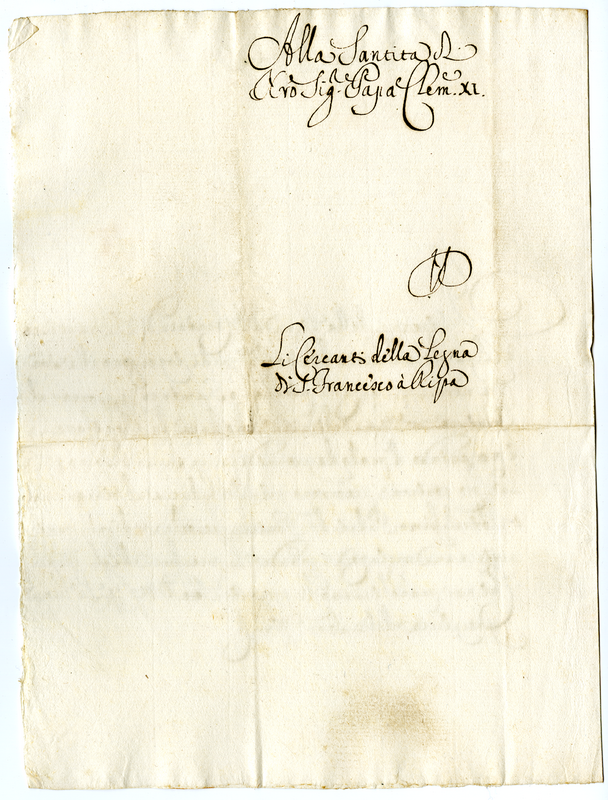 Alla Santità di
Nrõ Sig.r Papa Clem.e XI.
Li Cercanti della Legna
di S. Francesco à Ripa